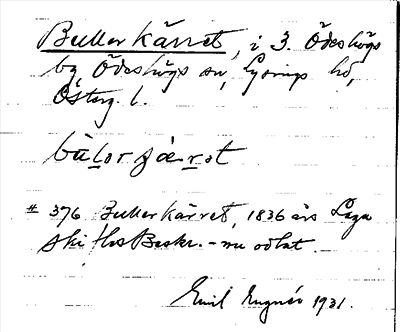 Buller kärret, i 3. Ödeshögs
by Ödeshögs sn, Lysings hd,
Österg. l.
bùlor çæ̀rot
# 376 Bullerkärret, 1836 års Laga
skiftes Beskr. - nu odlat.
Emil 1931.